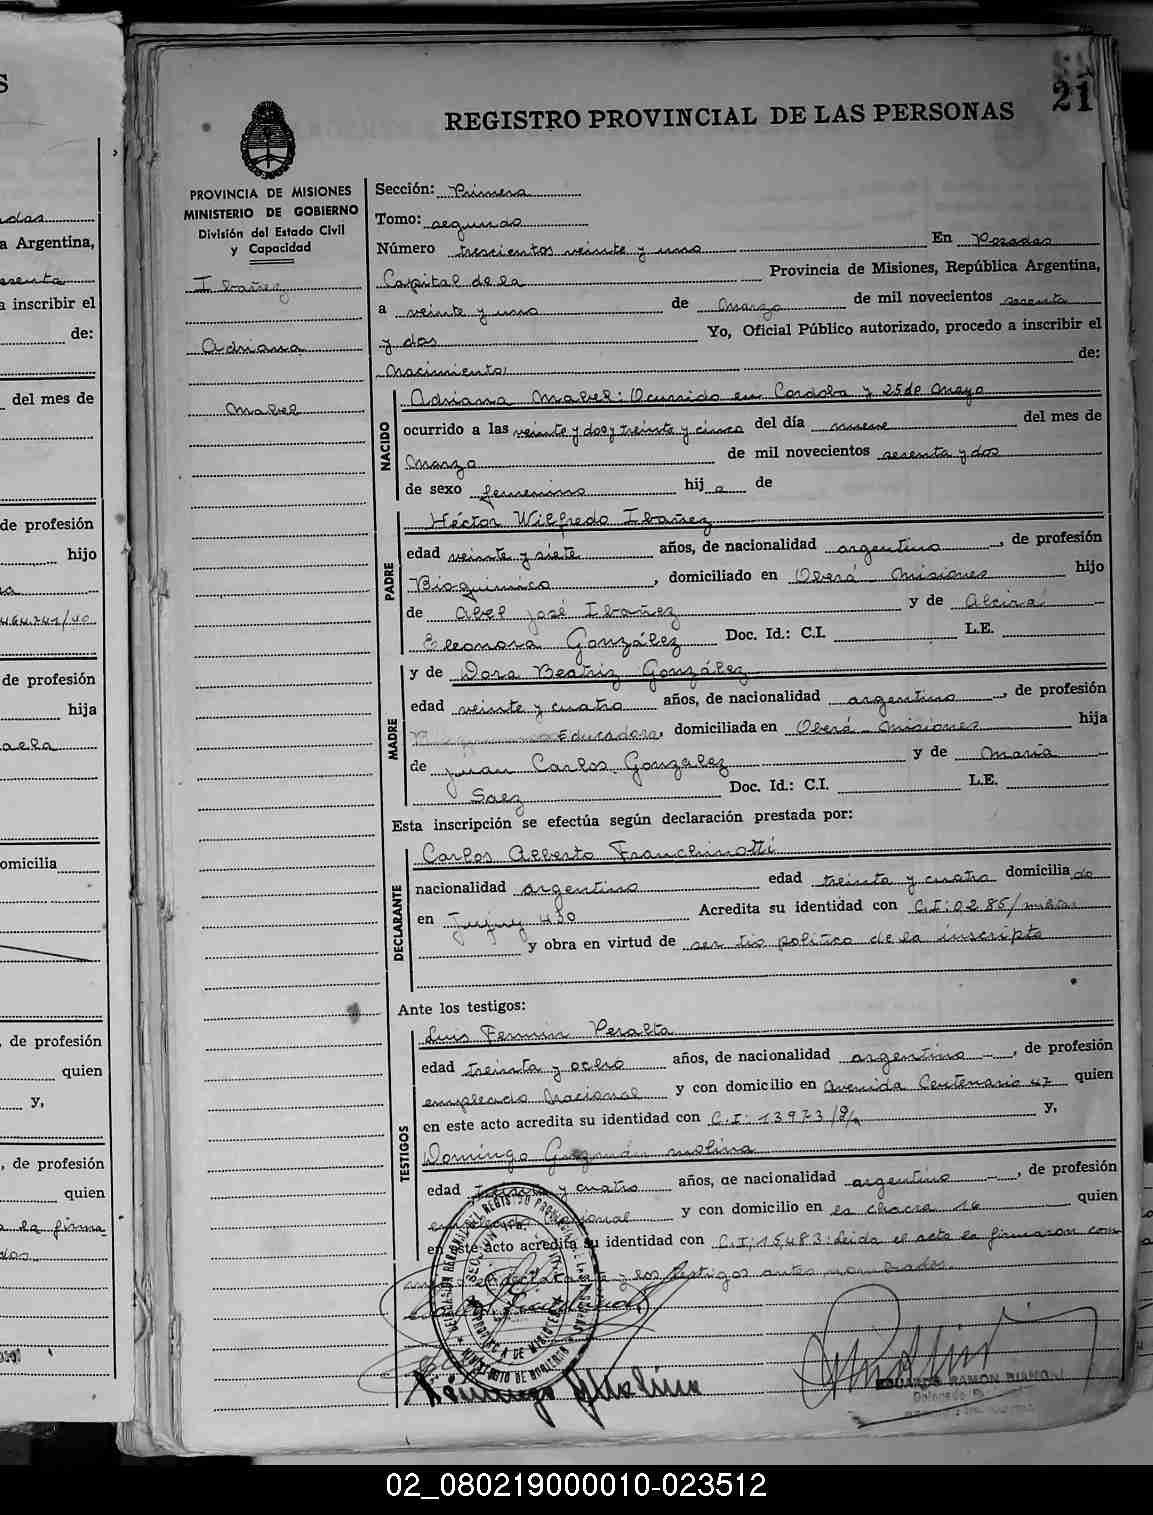 21
REGISTRO PROVINCIAL DE LAS PERSONAS
PROVINCIA DE MISIONES
MINISTERIO DE GOBIERNO
División del Estado Civil
y Capacidad
Ibañez
Adriana
Mabel
Sección: Primera
Tomo: segundo
Número trescientos veinte y uno En Posadas
Capital de la Provincia de Misiones, República Argentina,
a veinte y uno de Marzo de mil novecientos sesenta
y dos Yo, Oficial Público autorizado, procedo a inscribir el
Nacimiento de:
NACIDO
Adriana Mabel: Ocurrido en Cordoba y 25 de Mayo
ocurrido a las veinte y dos y treinta y cinco del día nueve del mes de
Marzo de mil novecientos sesenta y dos
de sexo femenino hij a de
PADRE
Héctor Wilfredo Ibañez
edad veinte y siete años, de nacionalidad argentino, de profesión
Bioquimico, domiciliado en Oberá Misiones hijo
de Abel José Ibañez y de Alcira
Eleonora González Doc. Id.: C.I. L.E.
MADRE
y de Dora Beatriz González
edad veinte y cuatro años, de nacionalidad argentino, de profesión
Educadora, domiciliada en Oberá Misiones hija
de Juan Carlos González y de María
Saez Doc. Id.: C.I. L.E.
Esta inscripción se efectúa según declaración prestada por:
DECLARANTE
Carlos Alberto Franchinotti
nacionalidad argentino edad treinta y cuatro domicilia do
en Jujuy 430 Acredita su identidad con C.I: 0285/
y obra en virtud de ser tio politico de la inscripta
Ante los testigos:
TESTIGOS
Luis Fermin Peralta
edad treinta y ocho años, de nacionalidad argentino, de profesión
empleado Nacional y con domicilio en Avenida Centenario 47 quien
en este acto acredita su identidad con C.I: 13973/ y,
Domingo Guzmán Molina
edad treinta y cuatro años, de nacionalidad argentino, de profesión
empleado Nacional y con domicilio en la chacra 16 quien
en este acto acredita su identidad con C.I; 15,483: Leida el acta la firmaron con
declarante y los testigos antes nombrados.
Domingo G Molina
EDUARDO RAMON BIANCHI
02_080219000010-023512